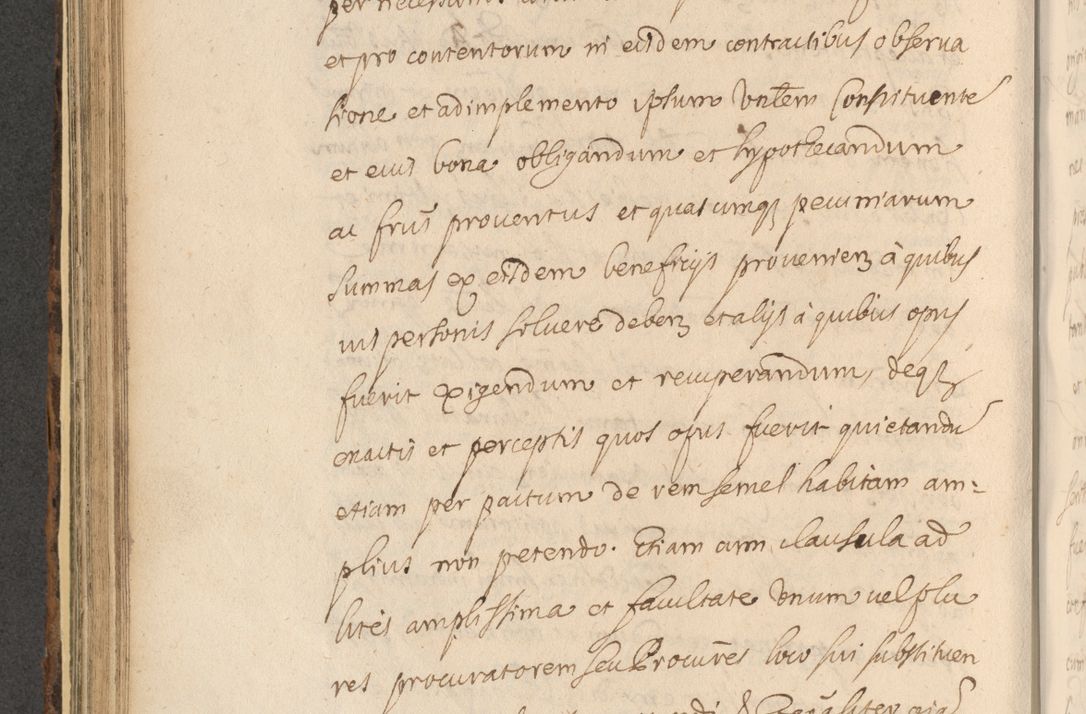 et pro contentorum in eisdem contractibus observa
tione et adimplemento ipsum Dnłem Constituente
et eius bona obligandum et hypothecandum
ac frūs proventus et quascumqz pecuniarum
summas ex eisdem beneficijs provenienz à quibus
uis personis soluere debenz et alijs à quibus opus
fuerit exigendum et recuperandum, deqz
exactis et perceptis quos opus fuerit quietandū
etiam per pactum de rem semel habitam am=
plius non petendo. Etiam cum clausula ad
lites amplissima et facultate unum vel plu
res procuratorem seu Procūres loco sui substituen